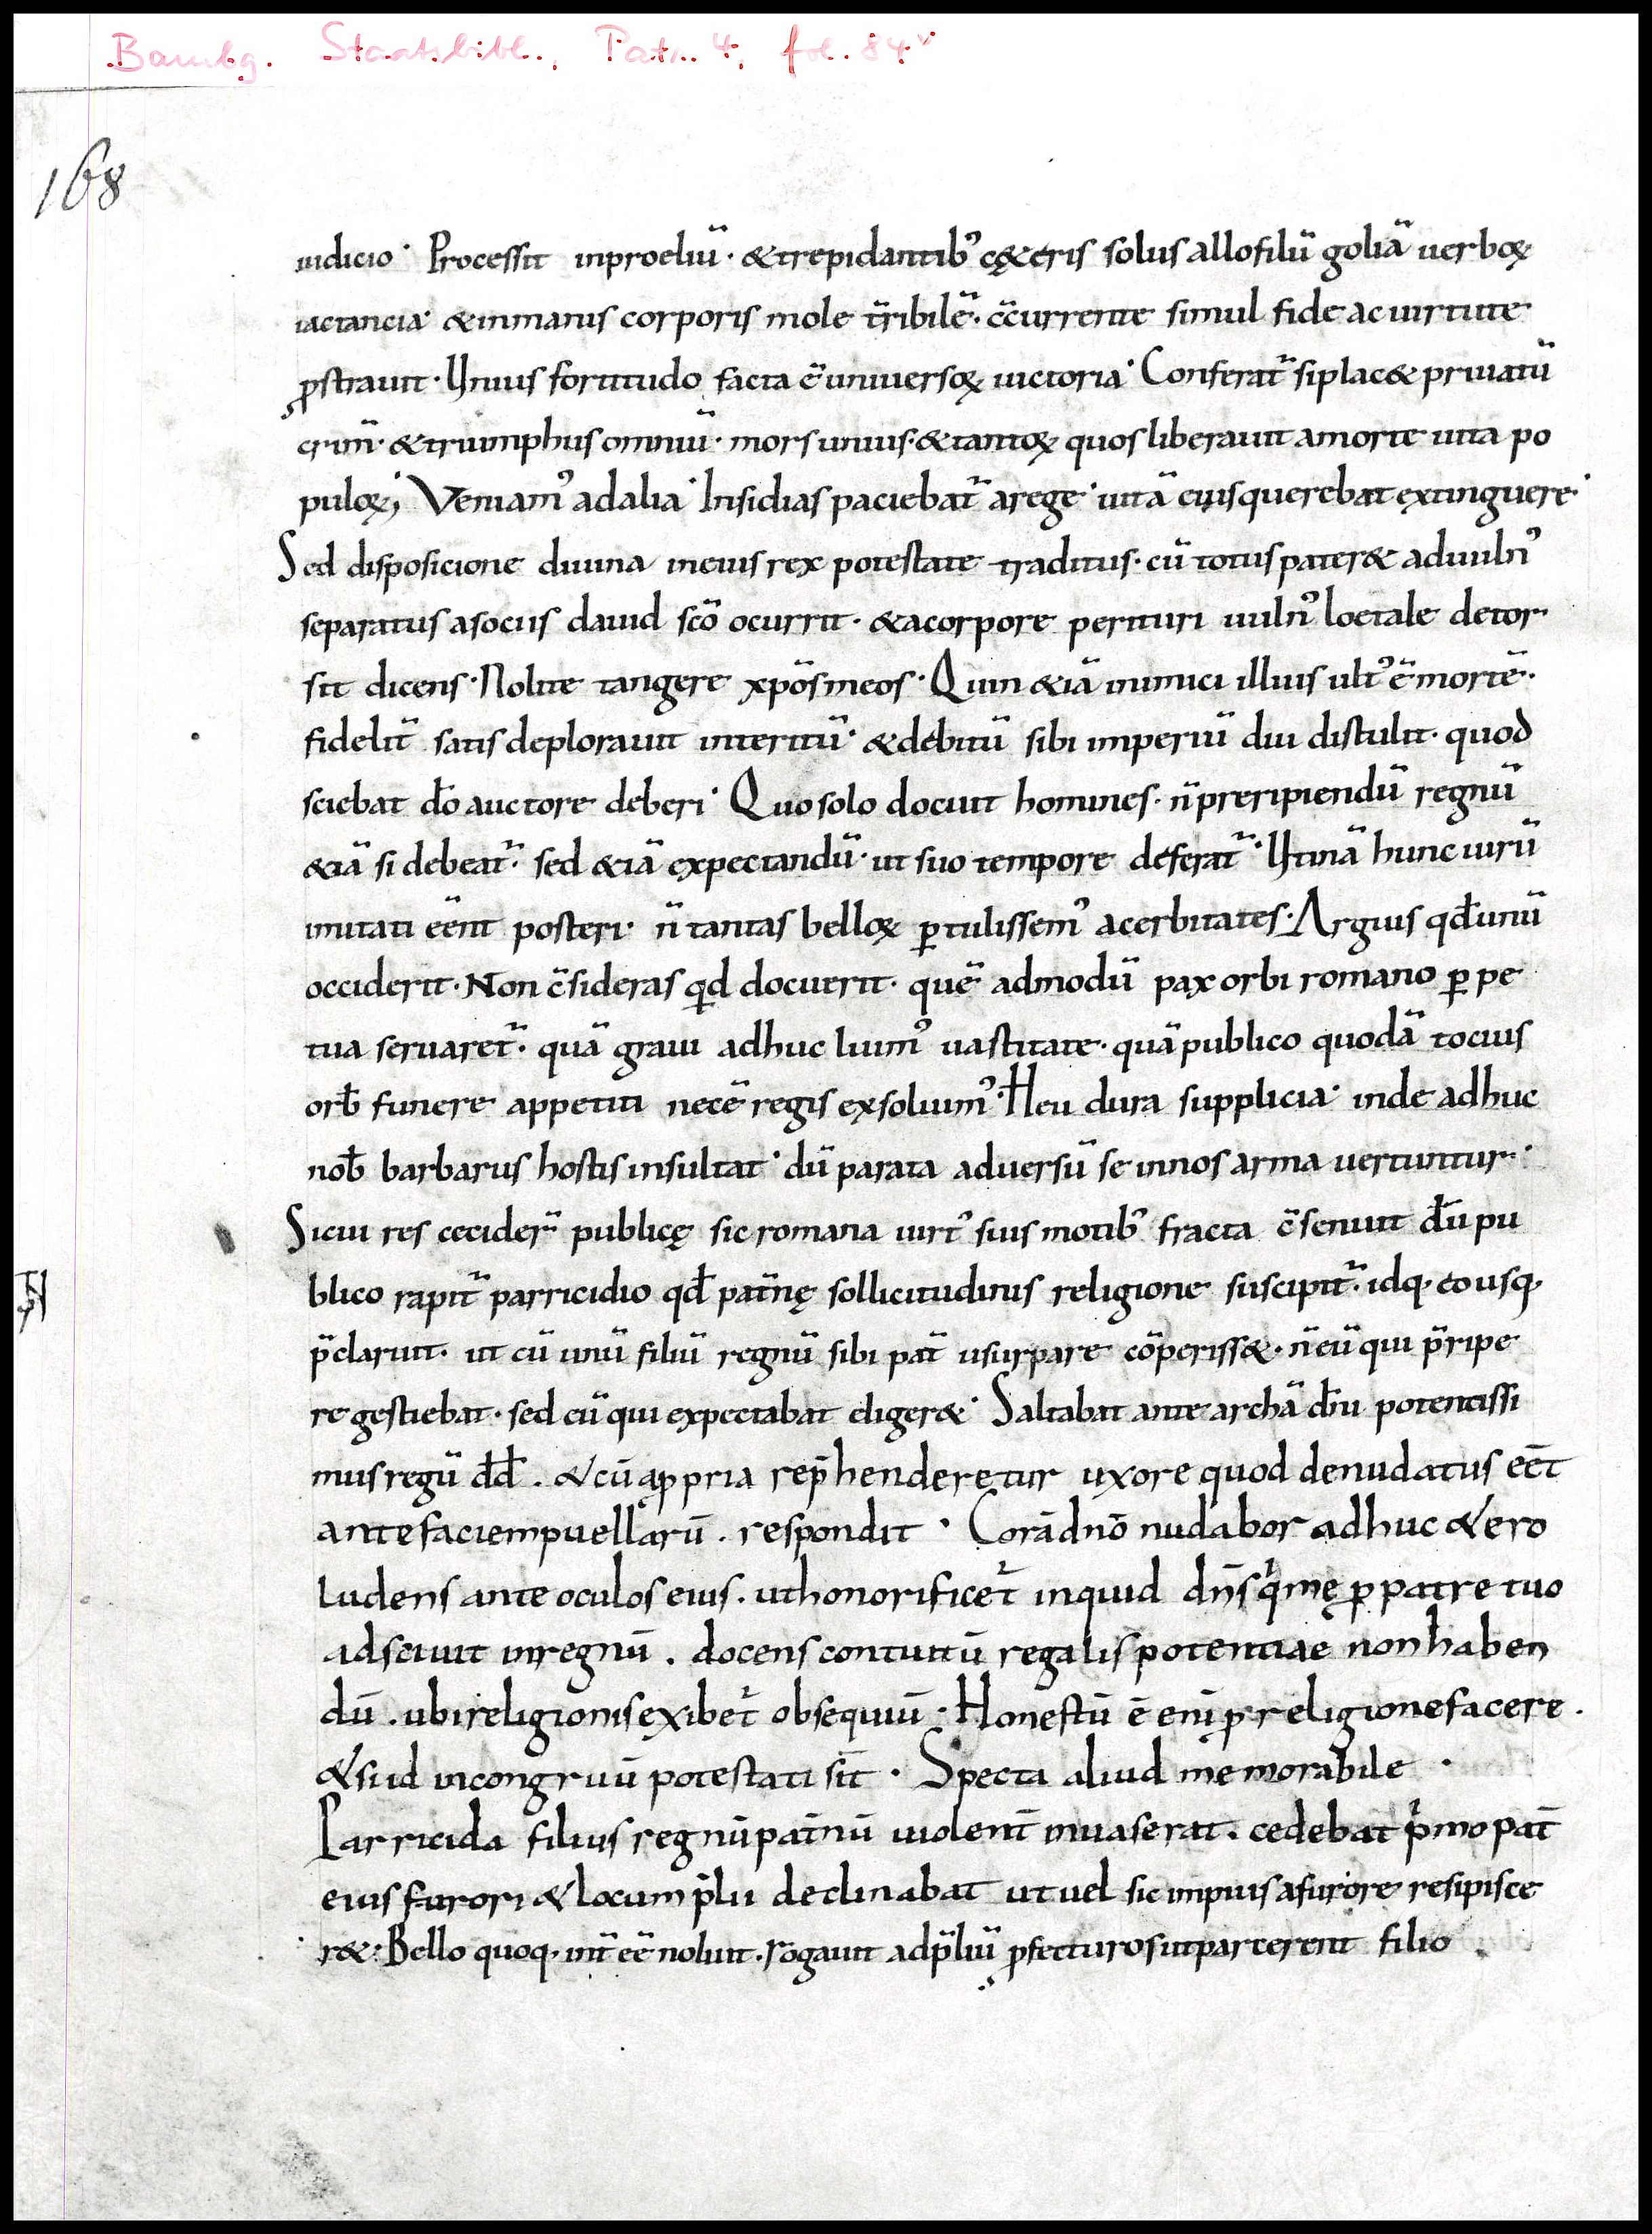 Bambg. Staatsbibl., Patr. 4, fol. 84v
168
iudicio· Processit inproeliū· &trepidantib' cę&eris solus allofilū goliā uerboꝝ
iactanciā &inmanis corporis mole t̄ribilē· c̄currente simul fide ac uirtute
ꝓstrauit· Unius fortitudo facta ē uniuersoꝝ uictoria· Conferat̄ siplac& priuatū
crim̄· &triumphus omniū· mors unius· &tantoꝝ quos liberauit amorte uita po
puloꝝ; Veniam' adalia· Insidias paciebat̄ arege· uitā eius querebat extinguere·
Sed disposicione diuina ineius rex potestate traditus· cū totus pater& aduuln'
separatus asociis dauid sc̄o ocurrit· &acorpore perituri uuln' loetale detor
sit dicens· Nolite tangere xp̄os meos· Quin &iā inimici illius ult' ē mortē·
fidelit̄ satis deplorauit interitū· &debitū sibi imperiū diu distulit· quod
sciebat d̄o auctore deberi· Quo solo docuit homines· n̄ preripiendū regnū
&iā si debeat̄· sed &iā expectandū· ut suo tempore deferat̄· Utinā hunc uirū
imitati eēnt posteri· n̄ tantas belloꝝ ꝑtulissem' acerbitates· Arguis qđ unū
occiderit· Non c̄sideras qid docuerit· quē admodū pax orbi romano ꝑpe
tua seruaret̄· quā graui adhuc luim' uastitate· quā publico quodā tocius
orb̄ funere appetiti necē regis exsoluim'· Heu dura supplicia· inde adhuc
nob̄ barbarus hostis insultat· dū parata aduersū se innos arma uertuntur·
Sicui res cecider̄ publicę sic romana uirt' suis motib' fracta c̄senuit d̄u pu
blico rapit̄ parricidio qđ pat̄nę sollicitudinis religione suscipit̄· idq· eousq·
p̄claruit· ut cū unū filiū regnū sibi pat̄ usurpare cōperiss&· n̄ eū qui p̄ripe
re gestiebat· sed eū qui expectabat eliger&· Saltabat ante archā d̄nu potentissi
mus regū dd̄· &cū aꝓpria rep̄henderetur uxore quod denudatus eēt
ante faciem puellarū· respondit· Corā dn̄o nudabor adhuc &ero
ludens ante oculos eius· ut honorificet̄ inquid dn̄s q̄ me ꝓpatre tuo
adsciuit inregnū· docens contuitū regalis potentiae non haben
dū· ubi religionis exibet̄ obsequiū· Honestū ē enī ꝓreligione facere·
&sị id incongruū potestati sit· Specta aliud memorabile·
Parricida filius regnū pat̄nū uiolent̄ inuaserat· cedebat p̄mo pat̄
eius furori &locum p̄lii declinabat ut uel sic impius afurore resipisce
r&· Bello quoq· int̄ eē noluit· rogauit adp̄liū ꝓfecturos ut parcerent filio